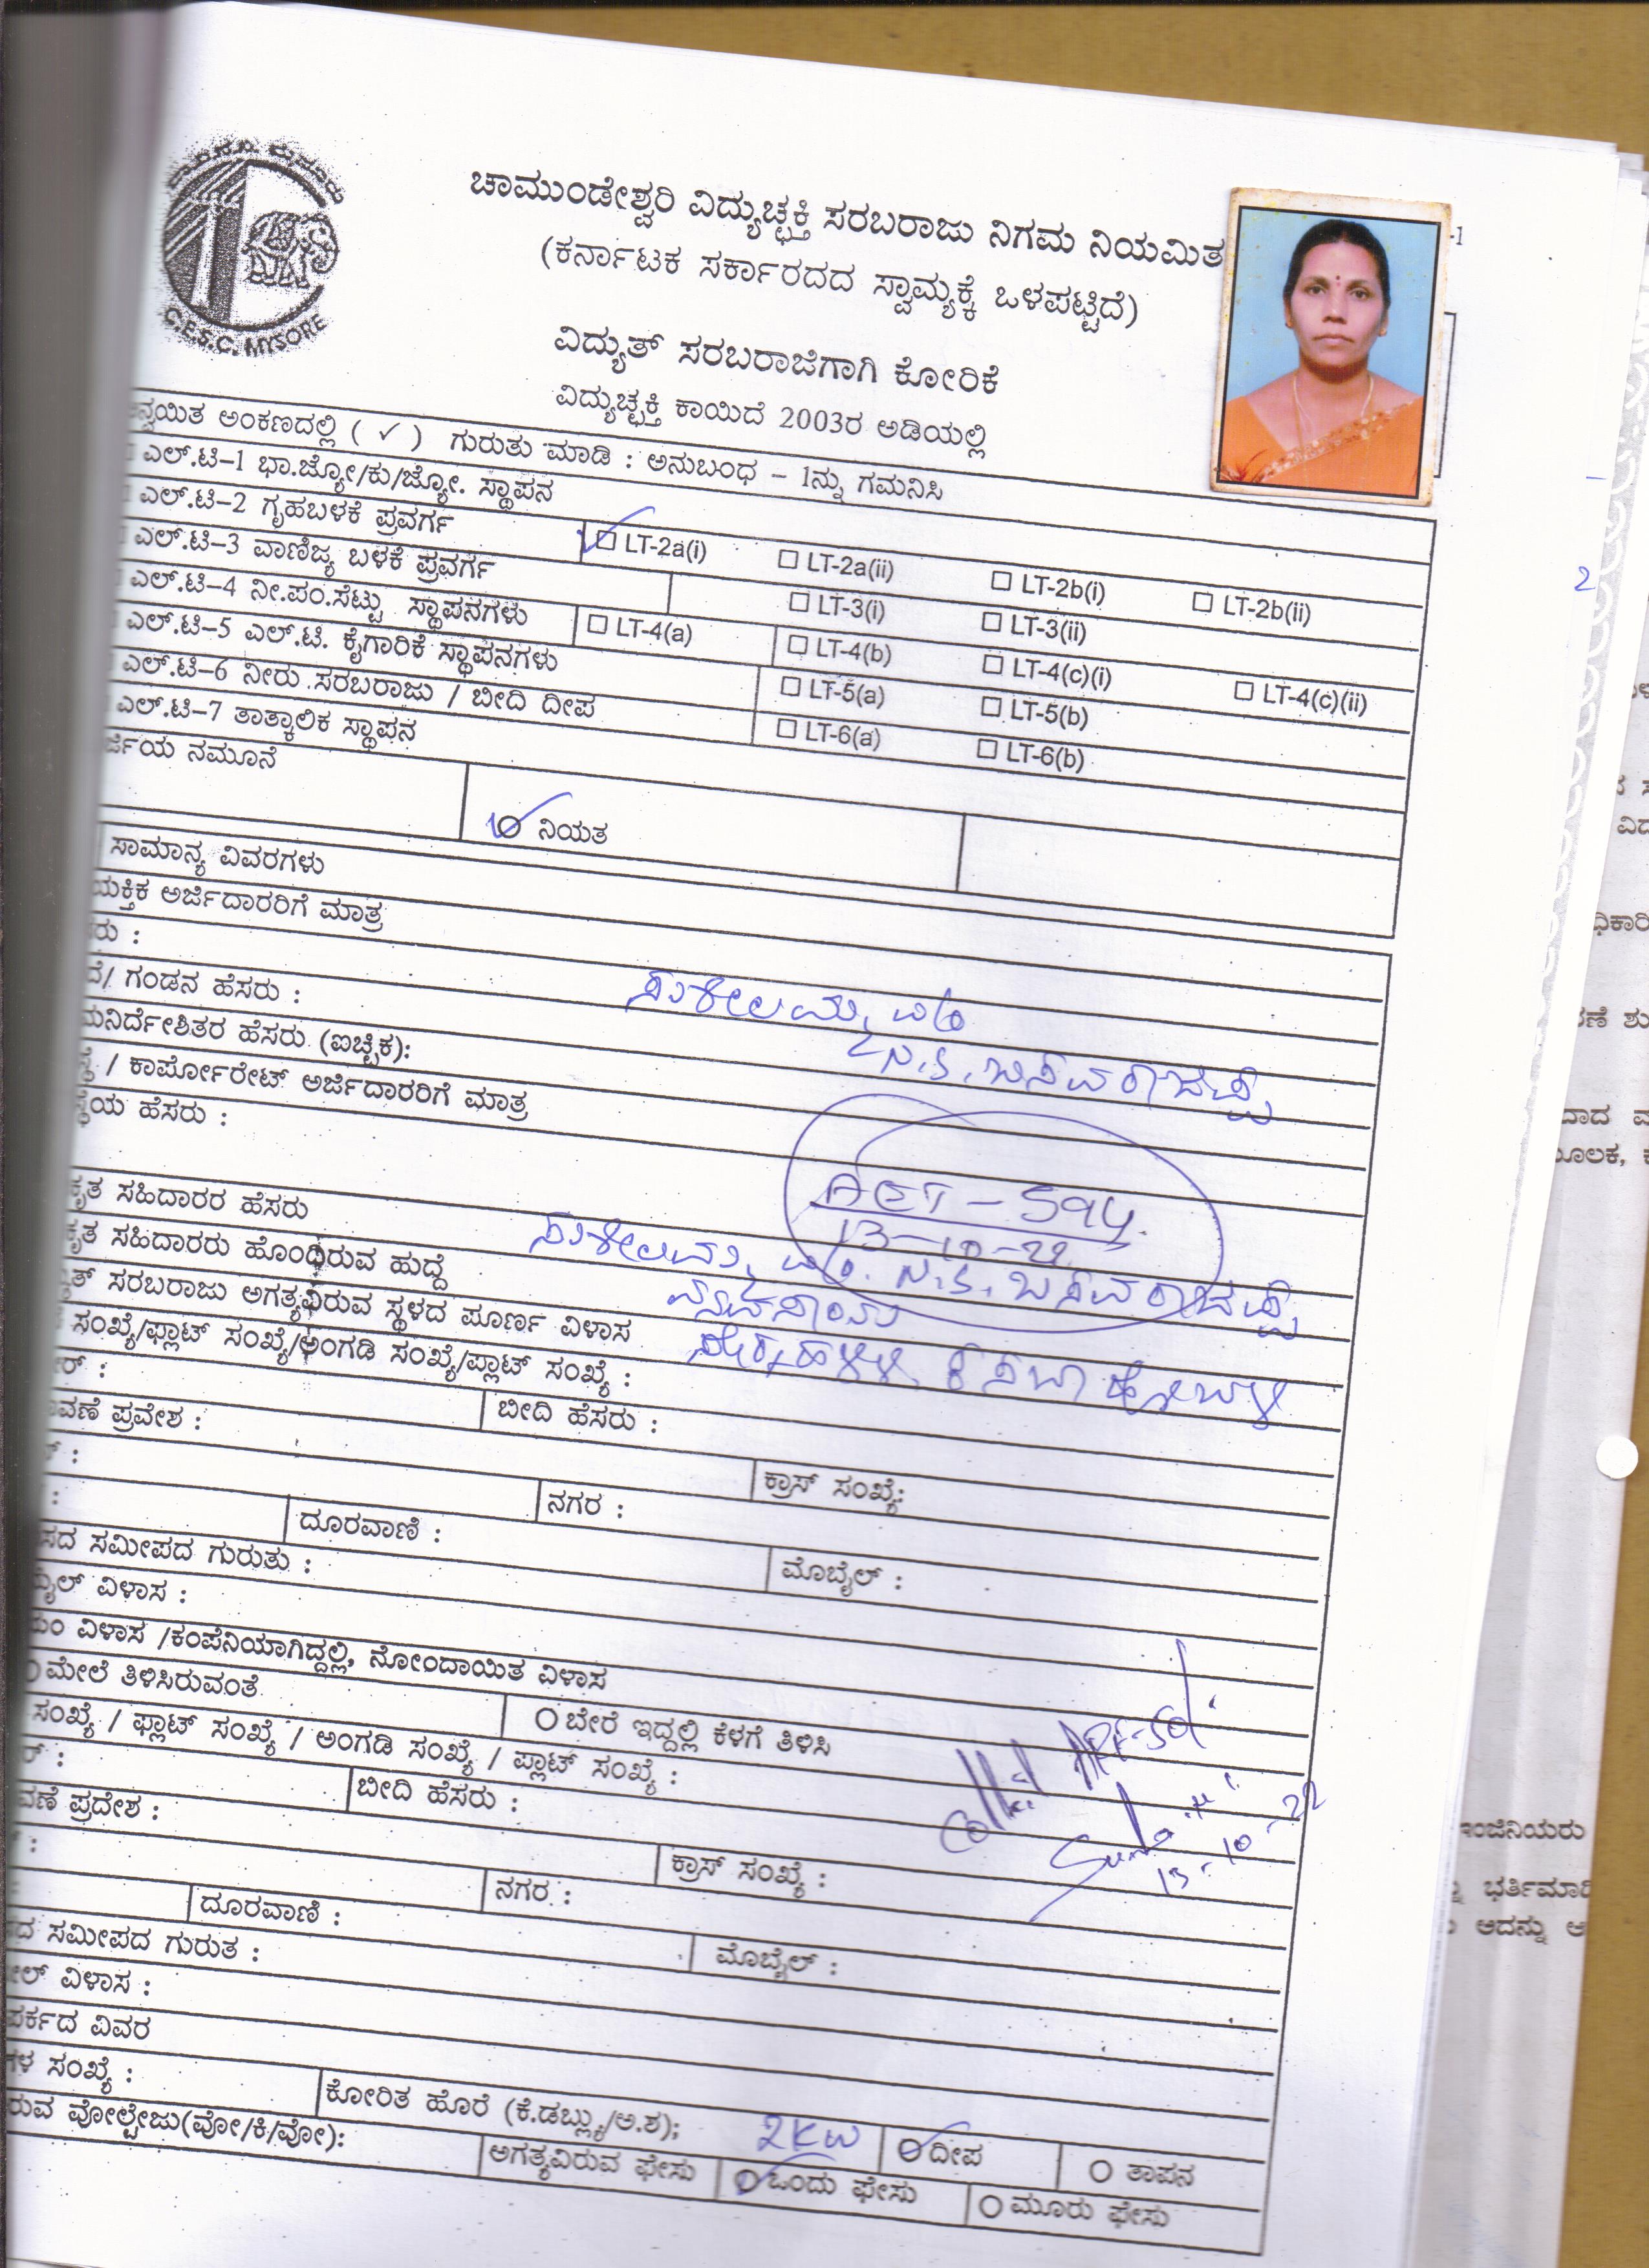 C.E.S.C. MYSORE
ಚಾಮುಂಡೇಶ್ವರಿ ವಿದ್ಯುಚ್ಛಕ್ತಿ ಸರಬರಾಜು ನಿಗಮ ನಿಯಮಿತ
-1
(ಕರ್ನಾಟಕ ಸರ್ಕಾರದದ ಸ್ವಾಮ್ಯಕ್ಕೆ ಒಳಪಟ್ಟಿದೆ)
ವಿದ್ಯುತ್ ಸರಬರಾಜಿಗಾಗಿ ಕೋರಿಕೆ
ವಿದ್ಯುಚ್ಛಕ್ತಿ ಕಾಯಿದೆ 2003ರ ಅಡಿಯಲ್ಲಿ
ನ್ವಯಿತ ಅಂಕಣದಲ್ಲಿ ( ✓ ) ಗುರುತು ಮಾಡಿ : ಅನುಬಂಧ – 1ನ್ನು ಗಮನಿಸಿ
ಎಲ್.ಟಿ–1 ಭಾ.ಜ್ಯೋ/ಕು/ಜ್ಯೋ. ಸ್ಥಾಪನ
ಎಲ್.ಟಿ–2 ಗೃಹಬಳಕೆ ಪ್ರವರ್ಗ LT-2a(i) LT-2a(ii) LT-2b(i) LT-2b(ii)
ಎಲ್.ಟಿ–3 ವಾಣಿಜ್ಯ ಬಳಕೆ ಪ್ರವರ್ಗ LT-3(i) LT-3(ii)
ಎಲ್.ಟಿ–4 ನೀ.ಪಂ.ಸೆಟ್ಟು ಸ್ಥಾಪನಗಳು LT-4(a) LT-4(b) LT-4(c)(i) LT-4(c)(ii)
ಎಲ್.ಟಿ–5 ಎಲ್.ಟಿ. ಕೈಗಾರಿಕೆ ಸ್ಥಾಪನಗಳು LT-5(a) LT-5(b)
ಎಲ್.ಟಿ–6 ನೀರು ಸರಬರಾಜು / ಬೀದಿ ದೀಪ LT-6(a) LT-6(b)
ಎಲ್.ಟಿ–7 ತಾತ್ಕಾಲಿಕ ಸ್ಥಾಪನ
ರ್ಜಿಯ ನಮೂನೆ
ನಿಯತ
ಸಾಮಾನ್ಯ ವಿವರಗಳು
ಯಕ್ತಿಕ ಅರ್ಜಿದಾರರಿಗೆ ಮಾತ್ರ
ರು : ಸುಶೀಲಮ್ಮ
ದೆ/ ಗಂಡನ ಹೆಸರು : ಎನ್.ಎಸ್. ಬಸವರಾಜಪ್ಪ
ಮನಿರ್ದೇಶಿತರ ಹೆಸರು (ಐಚ್ಛಿಕ):
/ ಕಾರ್ಪೋರೇಟ್ ಅರ್ಜಿದಾರರಿಗೆ ಮಾತ್ರ
ಸ್ಥೆಯ ಹೆಸರು :
13-10-22
ಕೃತ ಸಹಿದಾರರ ಹೆಸರು
ಕೃತ ಸಹಿದಾರರು ಹೊಂದಿರುವ ಹುದ್ದೆ
ತ್ ಸರಬರಾಜು ಅಗತ್ಯವಿರುವ ಸ್ಥಳದ ಪೂರ್ಣ ವಿಳಾಸ
ಸಂಖ್ಯೆ/ಫ್ಲಾಟ್ ಸಂಖ್ಯೆ/ಅಂಗಡಿ ಸಂಖ್ಯೆ/ಪ್ಲಾಟ್ ಸಂಖ್ಯೆ : ಕಸಬಾ ಹೋಬಳಿ
ರ್ : ಬೀದಿ ಹೆಸರು :
ವಣೆ ಪ್ರವೇಶ : ಕ್ರಾಸ್ ಸಂಖ್ಯೆ:
ನಗರ :
ದೂರವಾಣಿ : ಮೊಬೈಲ್ :
ಸದ ಸಮೀಪದ ಗುರುತು :
ಮೈಲ್ ವಿಳಾಸ :
ಯಂ ವಿಳಾಸ /ಕಂಪೆನಿಯಾಗಿದ್ದಲ್ಲಿ, ನೋಂದಾಯಿತ ವಿಳಾಸ
ಮೇಲೆ ತಿಳಿಸಿರುವಂತೆ ಬೇರೆ ಇದ್ದಲ್ಲಿ ಕೆಳಗೆ ತಿಳಿಸಿ
ಸಂಖ್ಯೆ / ಫ್ಲಾಟ್ ಸಂಖ್ಯೆ / ಅಂಗಡಿ ಸಂಖ್ಯೆ / ಪ್ಲಾಟ್ ಸಂಖ್ಯೆ :
ರ್ : ಬೀದಿ ಹೆಸರು :
ವಣೆ ಪ್ರದೇಶ : ಕ್ರಾಸ್ ಸಂಖ್ಯೆ :
13-10-22
ನಗರ :
ದೂರವಾಣಿ : ಮೊಬೈಲ್ :
ದ ಸಮೀಪದ ಗುರುತ :
ಲ್ ವಿಳಾಸ :
ಪರ್ಕದ ವಿವರ
ಗಳ ಸಂಖ್ಯೆ : ಕೋರಿತ ಹೊರೆ (ಕೆ.ಡಬ್ಲ್ಯು/ಅ.ಶ); 2KW ದೀಪ ತಾಪನ
ರುವ ವೋಲ್ಟೇಜು(ವೋ/ಕಿ/ವೋ): ಅಗತ್ಯವಿರುವ ಫೇಸು ಒಂದು ಫೇಸು ಮೂರು ಫೇಸು
2
ಧಿಕಾರಿ
ಇಂಜಿನಿಯರು
ಭರ್ತಿಮಾಡಿ
ಅದನ್ನು